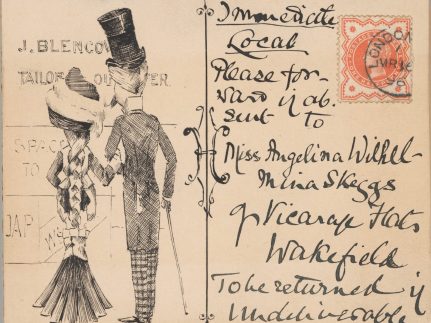 J. BLENCOW
TAILOR OUTFITTER.
SPACE
TO
SOAP
Immediate
Local
Please for-
ward if ab-
sent to
Miss Angelina Wilhel-
mina Skeggs
9 Vicarage Flats
Wakefield
To be returned if
undeliverable
LONDON